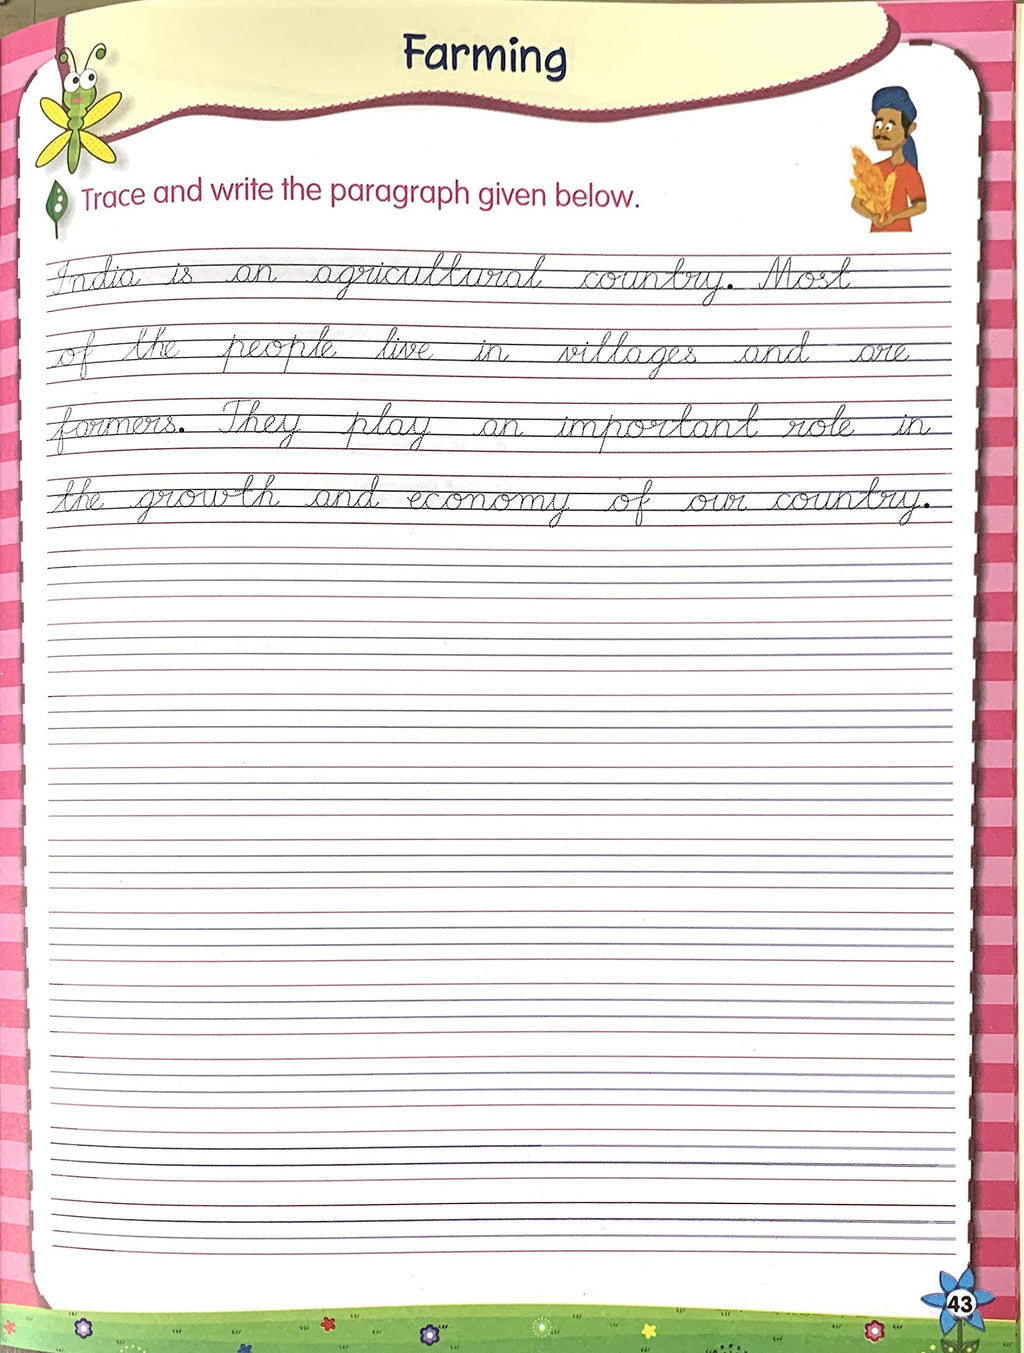 Farming
Trace and write the paragraph given below.
India is an agricultural country. Most
of the people live in villages and are
farmers. They play an important role in
the growth and economy of our country.
43